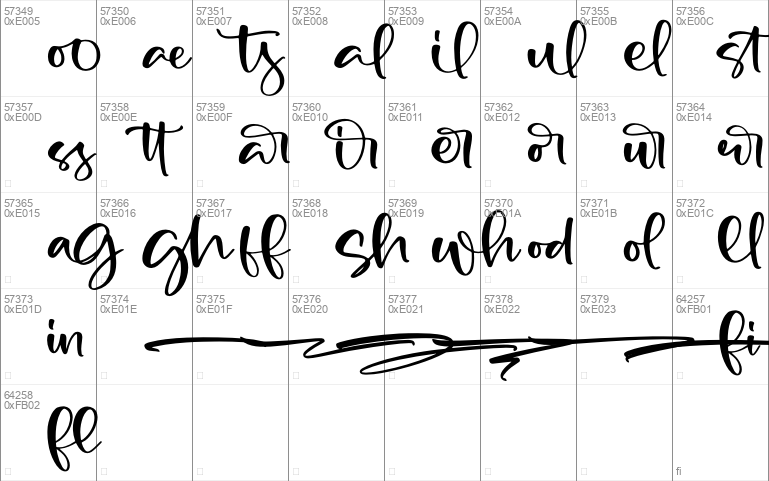 57349 57350 57351 57352 57353 57354 57355 57356
0xE005 0xE006 0xE007 0xE008 0xE009 0xE00A 0xE00B 0xE00C
oo ae ts al il ul el st
57357 57358 57359 57360 57361 57362 57363 57364
0xE00D 0xE00E 0xE00F 0xE010 0xE011 0xE012 0xE013 0xE014
ss tt ar ir er or ur wr
57365 57366 57367 57368 57369 57370 57371 57372
0xE015 0xE016 0xE017 0xE018 0xE019 0xE01A 0xE01B 0xE01C
ag gh ff sh wh od ol ll
57373 57374 57375 57376 57377 57378 57379 64257
0xE01D 0xE01E 0xE01F 0xE020 0xE021 0xE022 0xE023 0xFB01
in fi
fi
64258
0xFB02
fl